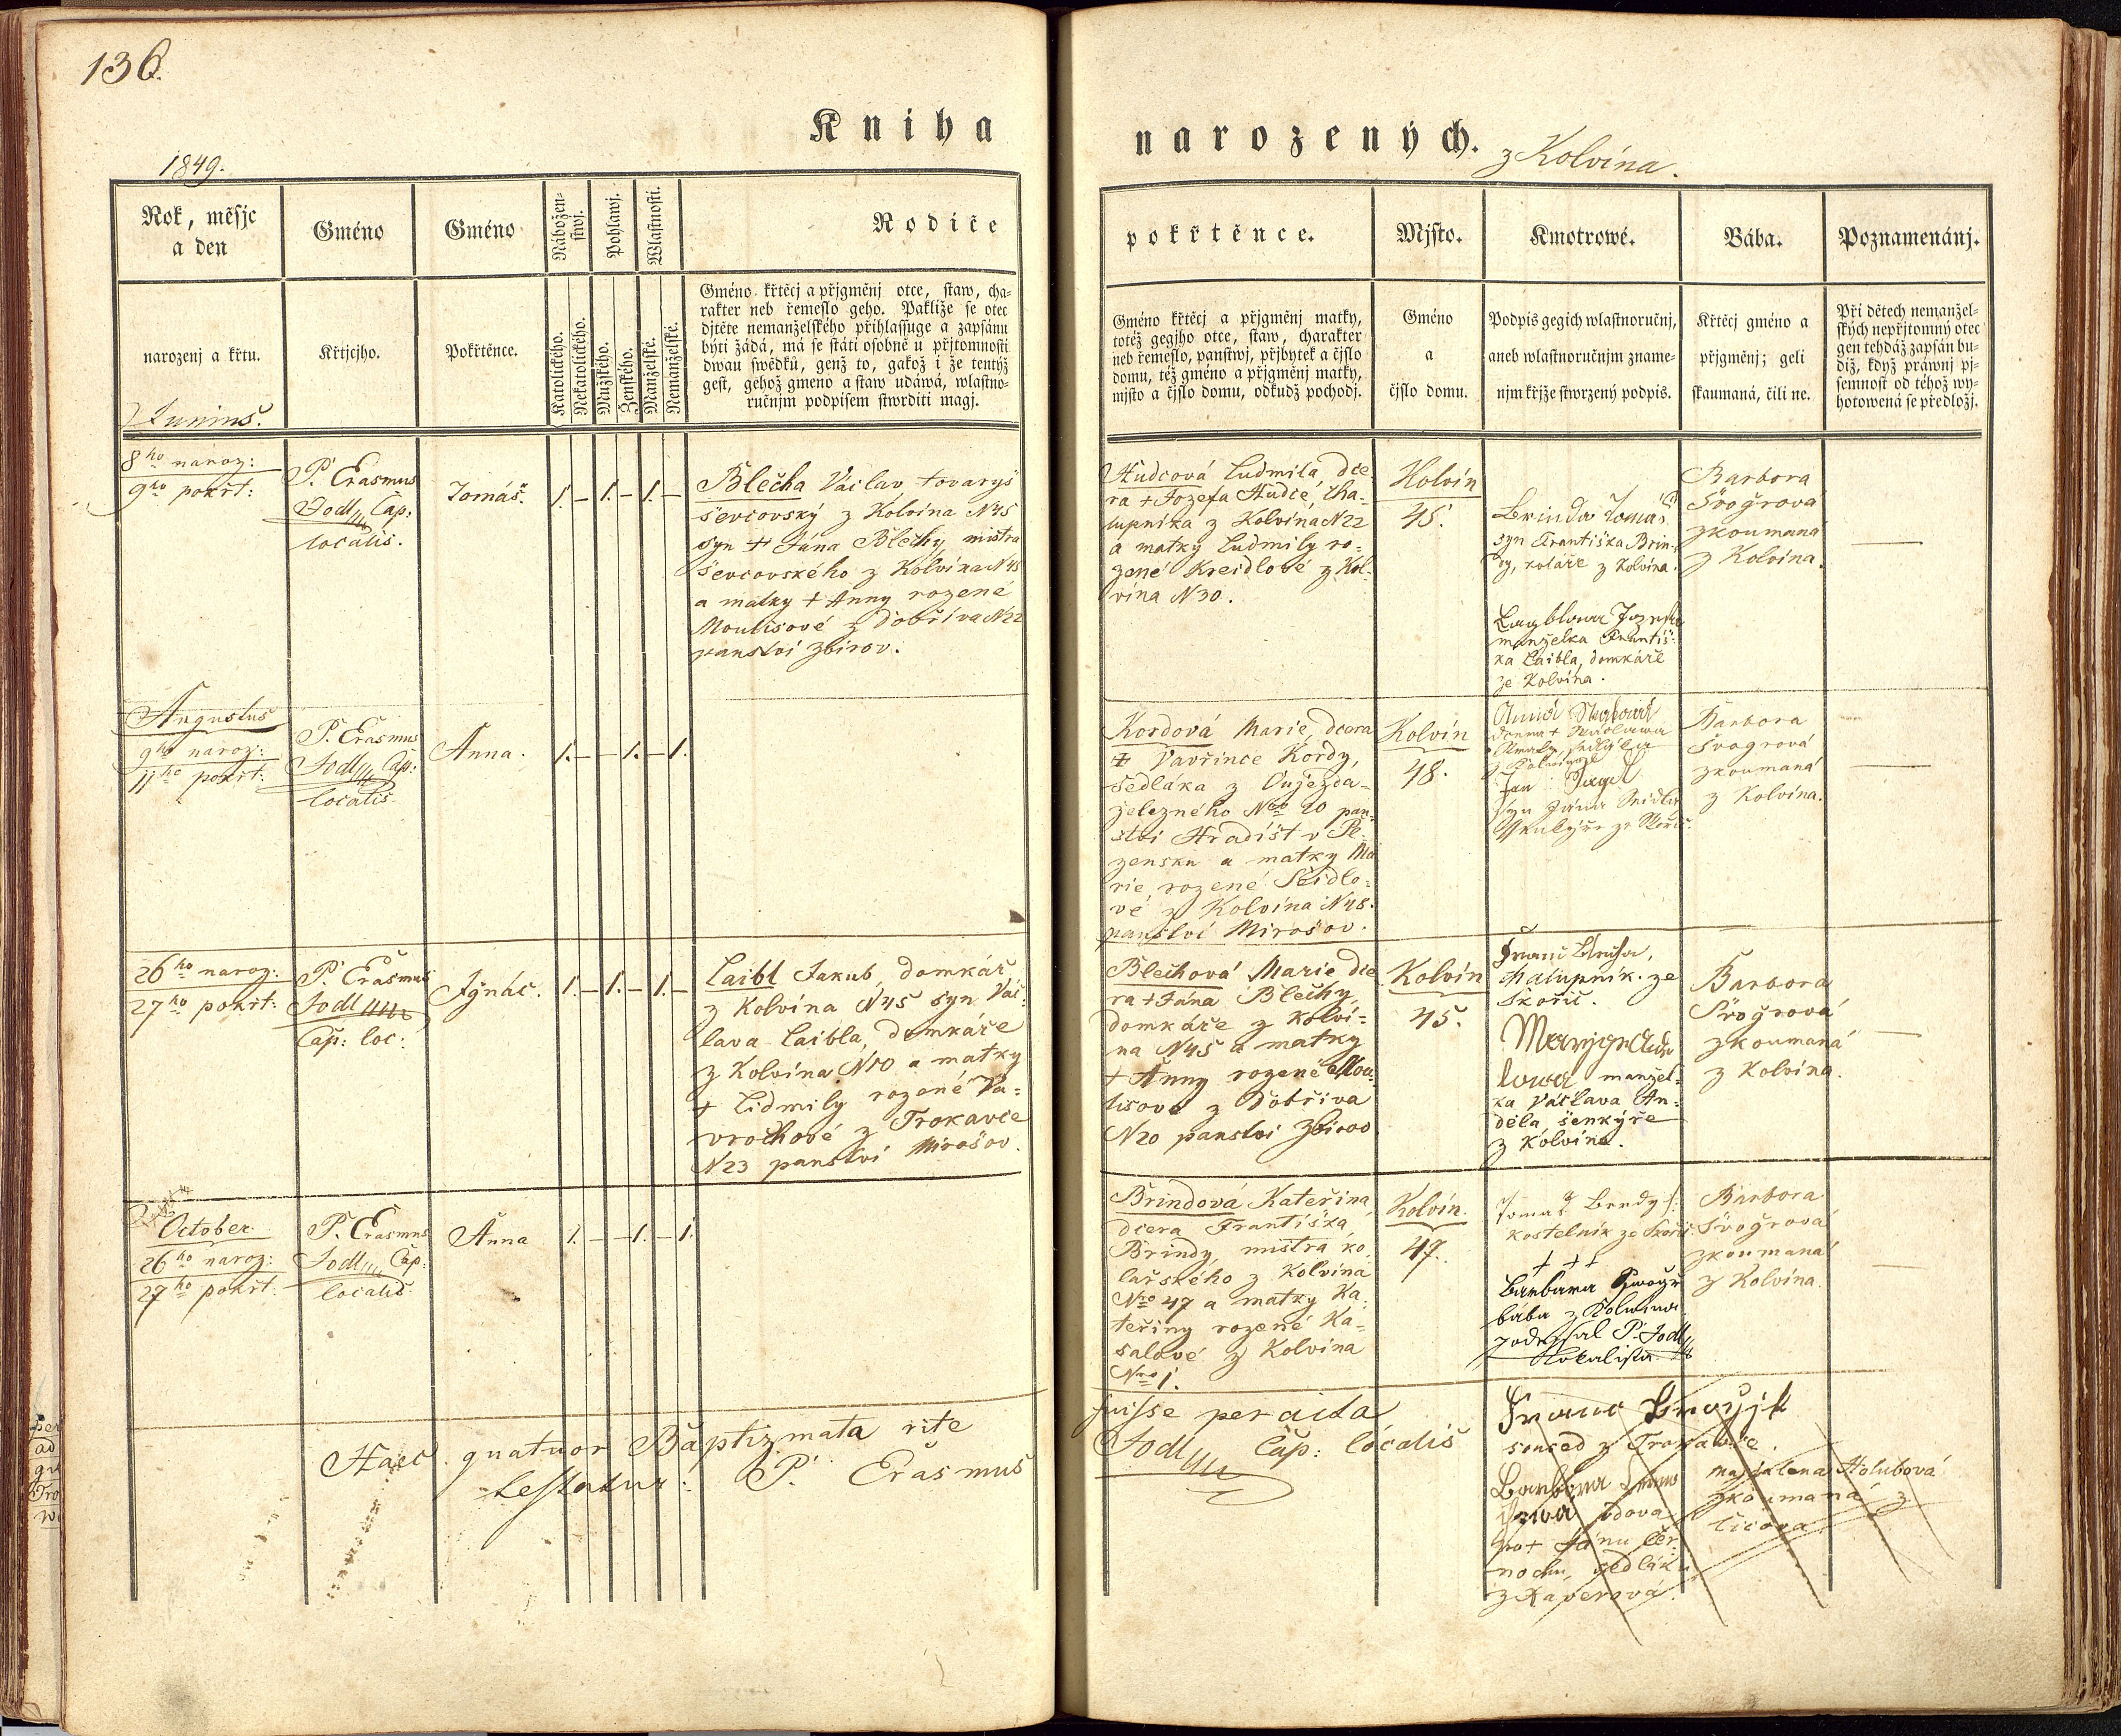 136.
Kniha
narozených.
z Kolvína.
1849.
Rok, měsjc
a den
narozenj a křtu.
Gméno
Křtjcjho.
Gméno
Pokřtěnce.
Nábožen-
stwj.
Pohlawj.
Wlastnosti.
Katolického.
Nekatolického.
Mužského.
Ženského.
Manželské.
Nemanželské.
Rodiče
Gméno křtěcj a přjgměnj otce, staw, cha-
rakter neb řemeslo geho. Pakliže se otec
djtěte nemanželského přihlassuge a zapsánu
býti žádá, má se státi osobně u přjtomnosti
dwau swědků, genž to, gakož i že tentýž
gest, gehož gmeno a staw udáwá, wlastno-
ručnjm podpisem stwrditi magj.
pokřtěnce.
Gméno křtěcj a přjgměnj matky,
totéž gegjho otce, staw, charakter
neb řemeslo, panstwj, přjbytek a čjslo
domu, též gméno a přjgměnj matky,
mjsto a čjslo domu, odkudž pochodj.
Mjsto.
Gméno
a
čjslo domu.
Kmotrowé.
Podpis gegich wlastnoručnj,
aneb wlastnoručnjm zname-
njm křjže stwrzený podpis.
Bába.
Křtěcj gméno a
přjgměnj; geli
skaumaná, čili ne.
Poznamenánj.
Při dětech nemanžel-
ských nepřjtomný otec
gen tehdáž zapsán bu-
diž, když práwnj pj-
semnost od téhož wy-
hotowená se předložj.
Junius.
8ho naroz:
9ho pokřt:
P. Erasmus
Jodl Cap:
localis.
Tomáš.
1. – 1. – 1. –
Blecha Václav tovaryš
ševcovský z Kolvína N45
syn + Jána Blechy mistra
ševcovského z Kolvína N45
a matky + Anny rozené
Moulisové z Dobříva N22
panství Zbirov.
Hudcová Ludmila dce
ra + Jozefa Hudce, cha-
lupníka z Kolvína N22
a matky Ludmily ro-
zené Kreidlové z Kol-
vína N30.
Kolvín
45.
Brinda Tomáš
syn Františka Brin-
dy, koláře z Kolvína.
manželka Františ-
ka Laibla, domkáře
ze Kolvína.
Barbora
Švogrová
zkoumaná
z Kolvína.
Augustus
9ho naroz:
11ho pokřt:
P. Erasmus
Jodl Cap:
localis.
Anna.
1. – – 1. – 1.
Kordová Marie, dcera
+ Vavřince Kordy,
sedláka z Oujezda-
železného Nro 20 pan-
ství Hradišt v Pl-
zensku a matky Ma
rie, rozené Seidlo-
vé z Kolvína N48.
panství Mirošov.
Kolvín
48.
Jan
syn Jána Seidla
Barbora
Švogrová
zkoumaná
z Kolvína.
26ho naroz:
27ho pokřt:
P. Erasmus
Jodl
Cap: loc:
Ignác.
1. – 1. – 1. –
Laibl Jakub, domkář
z Kolvína N45 syn Vác-
lava Laibla, domkáře
z Kolvína N10 a matky
+ Lidmily rozené Va-
vrochové z Trokavce
N23 panství Mirošov.
Blechová Marie dce
ra + Jána Blechy,
domkáře z Kolví-
na N45 a matky
+ Anny rozené Mou-
lisové z Dobříva
N20 panství Zbirov
Kolvín
45.
chalupník ze
Skořic.
manžel-
ka Václava An-
děla šenkýře
z Kolvína.
Barbora
Švogrová
zkoumaná
z Kolvína.
October.
26ho naroz:
27ho pokřt:
P. Erasmus
Jodl Cap:
localis
Anna
1. – – 1. – 1.
Brindová Kateřina
dcera Františka
Brindy, mistra ko
lařského z Kolvína
Nro 47 a matky Ka-
teřiny rozené Ka-
salové z Kolvína
Nro 1.
Kolvín.
47.
Tomaš Bendy
kostelník ze Skořic.
+ + +
Barbara Swogr
bába z Kolwína
podepsal P. Jodl
Lokalista
Barbora
Švogrová
zkoumaná
z Kolvína.
Haec quatuor Baptizmata rite
fuisse peracta
testatur: P. Erasmus
Jodl Cap: localis
soused z Trokavce.
Barbora
vdova
po + Jánu Čer-
nochu, sedláku
z Kaperova.
Majdalena Holubová
zkoumaná z
Čicova